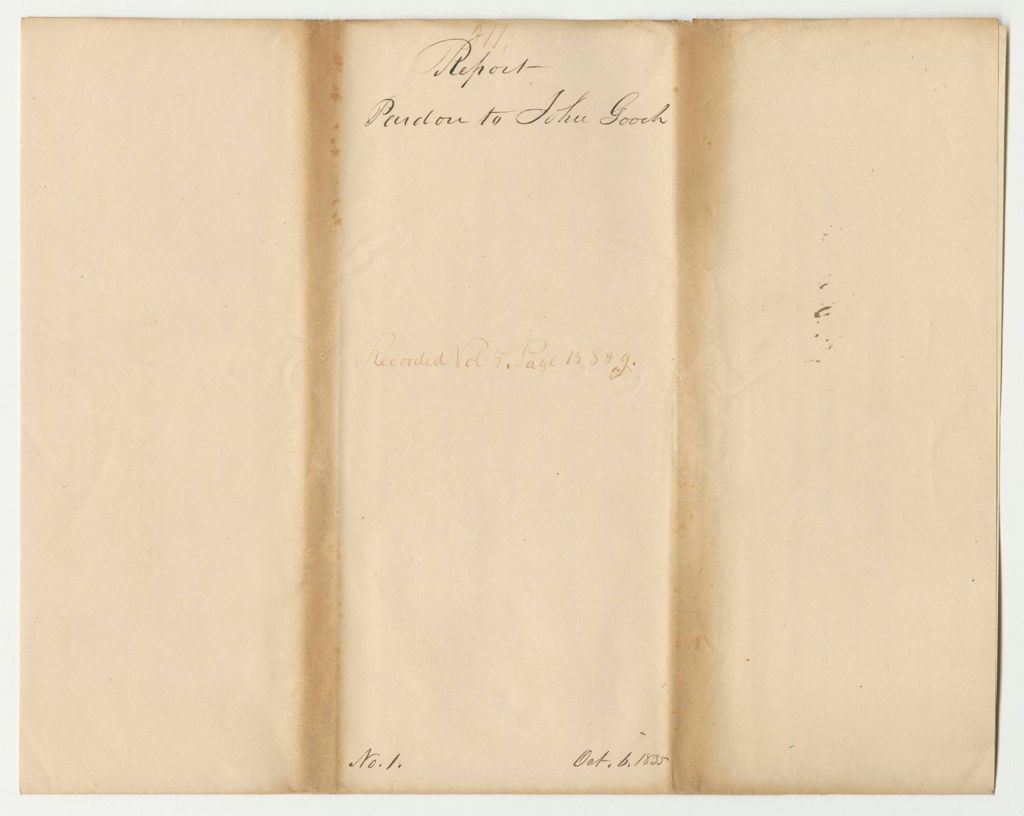 211.
Report
Pardon to John Gooch
Recorded Vol 5. Page 158 & 9.
No. 1.
Oct. 6. 1835